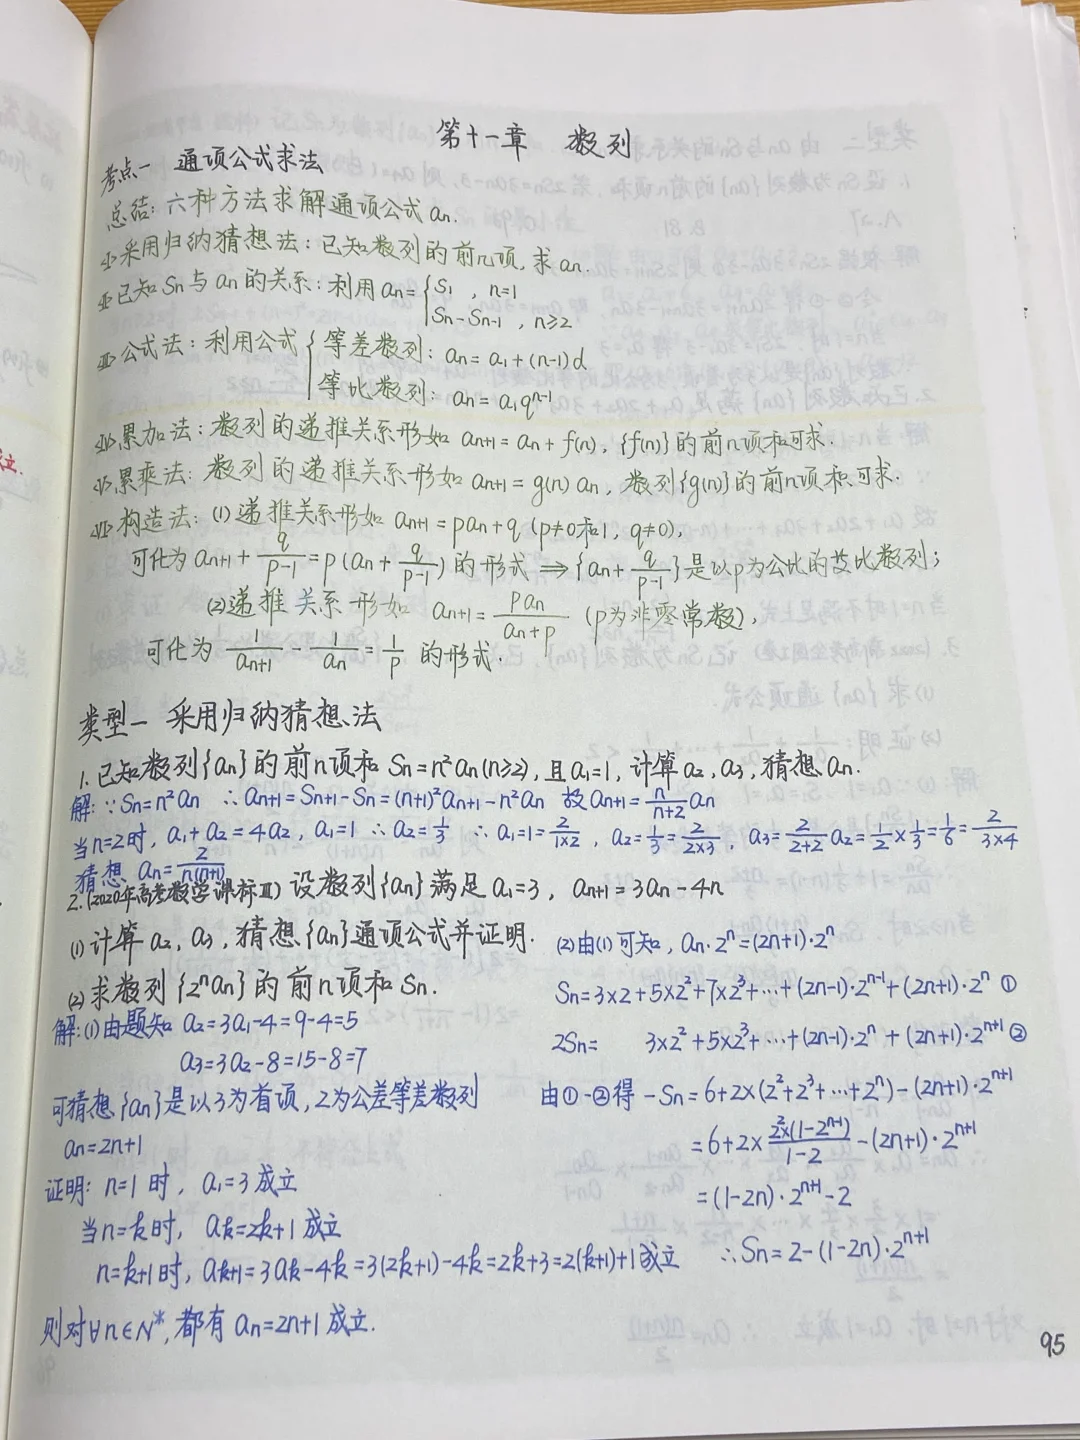 第十一章 数列
考点一 通项公式求法
总结:六种方法求解通项公式an.
<Ⅰ>采用归纳猜想法:已知数列的前n项,求an.
<Ⅱ>已知Sn与an的关系:利用an={S1, n=1
Sn-Sn-1, n≥2
<Ⅲ>公式法:利用公式{等差数列:an=a1+(n-1)d
等比数列:an=a1q^(n-1)
<Ⅳ>累加法:数列的递推关系形如 an+1=an+f(n),{f(n)}的前n项和可求.
<Ⅴ>累乘法:数列的递推关系形如 an+1=g(n)an,数列{g(n)}的前n项积可求.
<Ⅵ>构造法:(1)递推关系形如 an+1=pan+q(p≠0和1,q≠0),
可化为an+1+q/(p-1)=p(an+q/(p-1))的形式⇒{an+q/(p-1)}是以p为公比的等比数列;
(2)递推关系形如 an+1=pan/(an+p) (p为非零常数),
可化为 1/an+1-1/an=1/p 的形式.
类型一 采用归纳猜想法
1.已知数列{an}的前n项和Sn=n²an(n≥2),且a1=1,计算a2,a3,猜想an.
解:∵Sn=n²an ∴an+1=Sn+1-Sn=(n+1)²an+1-n²an 故an+1=n/(n+2)an
当n=2时,a1+a2=4a2,a1=1 ∴a2=1/3 ∴a1=1=2/(1×2),a2=1/3=2/(2×3),a3=2/(2+2)a2=1/2×1/3=1/6=2/(3×4)
猜想 an=2/(n(n+1))
2.(2020年高考数学课标Ⅲ)设数列{an}满足a1=3,an+1=3an-4n
(1)计算a2,a3,猜想{an}通项公式并证明.
(2)求数列{2^n an}的前n项和Sn.
解:(1)由题知 a2=3a1-4=9-4=5
a3=3a2-8=15-8=7
可猜想{an}是以3为首项,2为公差等差数列
an=2n+1
证明:n=1时,a1=3成立
当n=k时,ak=2k+1成立
n=k+1时,ak+1=3ak-4k=3(2k+1)-4k=2k+3=2(k+1)+1成立
则对∀n∈N*,都有an=2n+1成立.
(2)由(1)可知,an·2^n=(2n+1)·2^n
Sn=3×2+5×2²+7×2³+…+(2n-1)·2^(n-1)+(2n+1)·2^n ①
2Sn= 3×2²+5×2³+…+(2n-1)·2^n+(2n+1)·2^(n+1) ②
由①-②得 -Sn=6+2×(2²+2³+…+2^n)-(2n+1)·2^(n+1)
=6+2×2²×(1-2^(n-1))/(1-2)-(2n+1)·2^(n+1)
=(1-2n)·2^(n+1)-2
∴Sn=2-(1-2n)·2^(n+1)
95